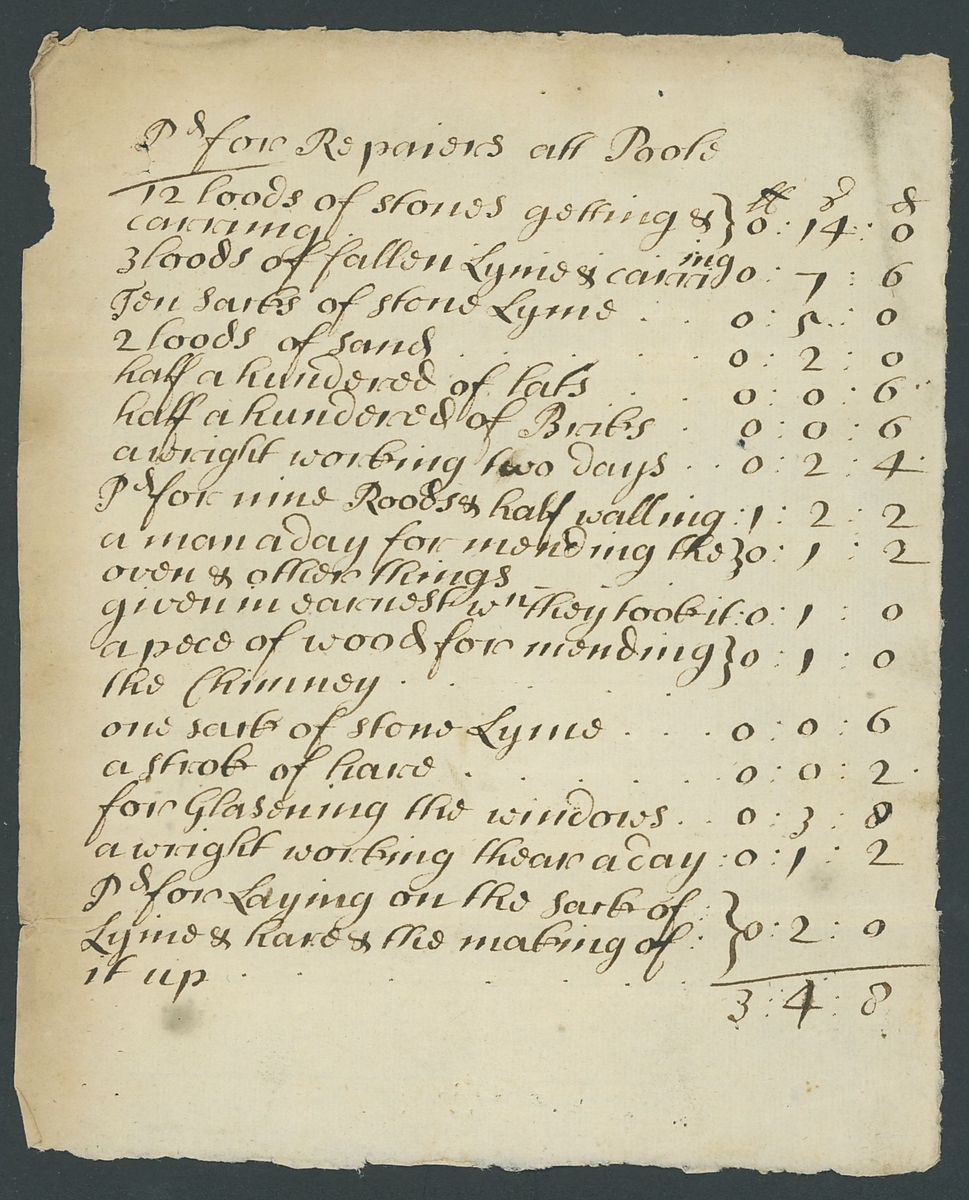 Pd for Repaiers att Poole
12 loods of stones getting & } o : 14 : o
carring
3 loods of fallen Lyme & carriing o : 7 : 6
Ten sacks of stone Lyme . . o : 5 : o
2 loods of sand . . . . o : 2 : o
half a hundered of lats . . o : o : 6
half a hundered of Bricks . o : o : 6
a wright working two days . . o : 2 : 4
Pd for nine Roods & half walling : 1 : 2 : 2
a man a day for mending the } o : 1 : 2
oven & other things
given in earnest wn they took it : o : 1 : o
a pece of wood for mending } o : 1 : o
the Chimney . . .
one sack of stone Lyme . . . o : o : 6
a strok of hare . . . . . o : o : 2
for Glasening the windows . . o : 3 : 8
a wright working thear a day : o : 1 : 2
Pd for Laying on the sack of : }
Lyme & hare & the making of : } o : 2 : o
it up . . . . . .
3 : 4 : 8